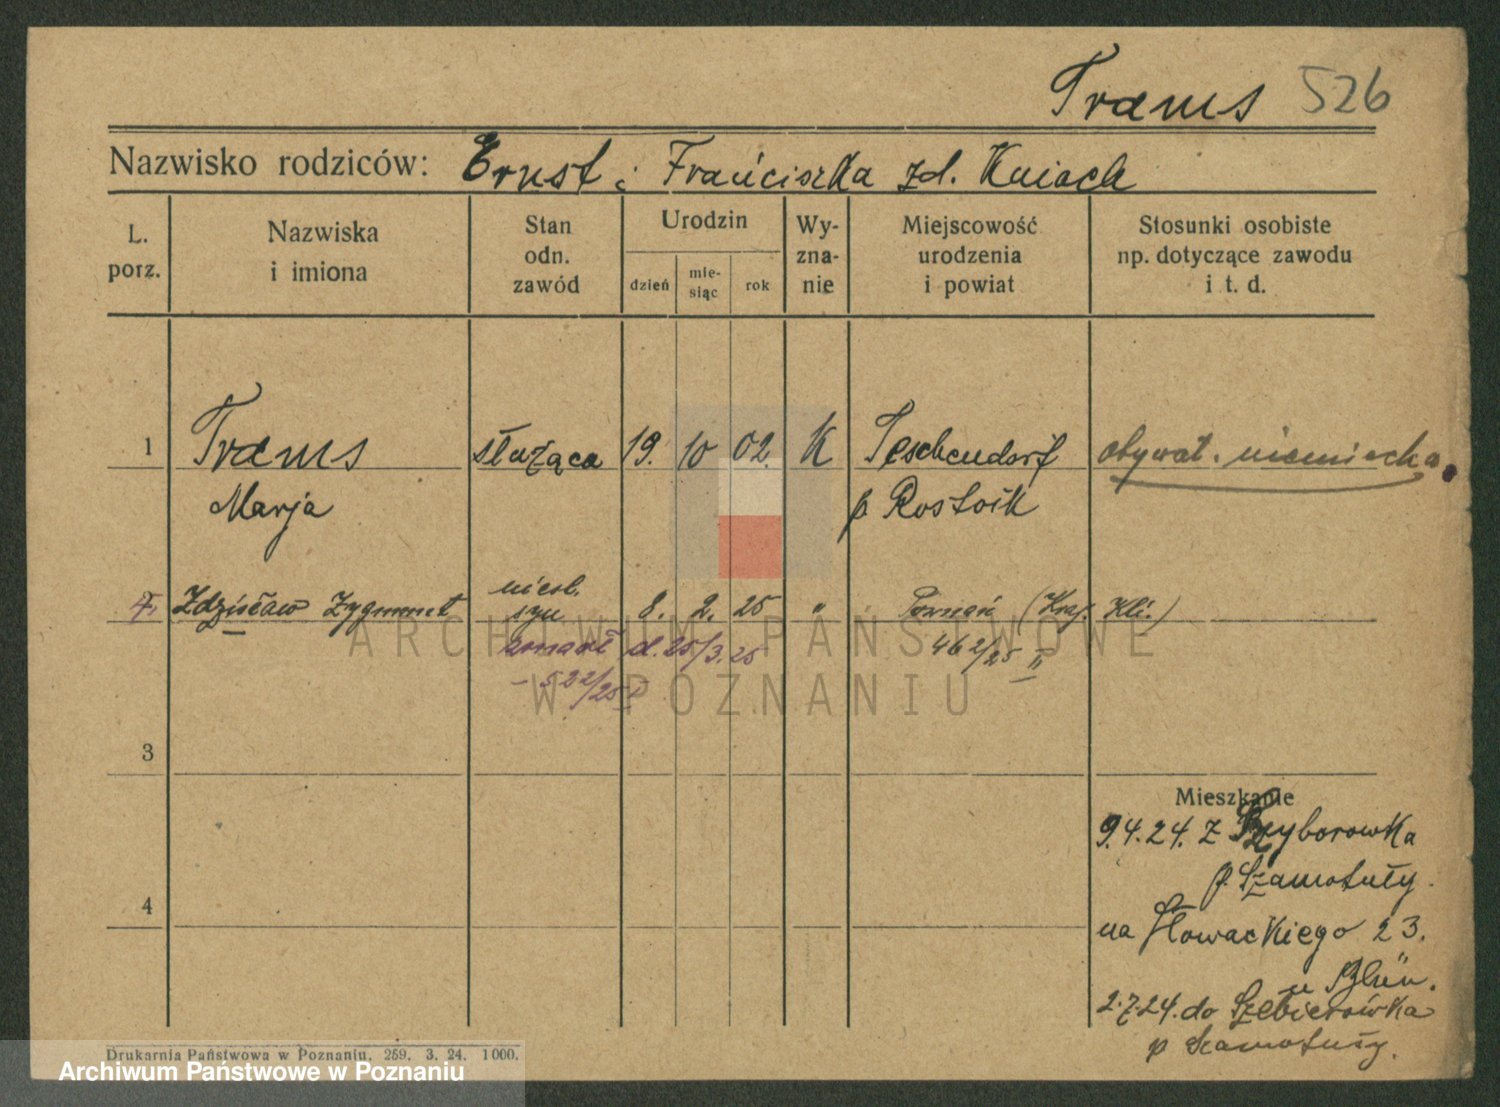 Trams 526
Nazwisko rodziców: Ernst i Franciszka zd. Kniach
L. porz.
Nazwiska i imiona
Stan odn. zawód
Urodzin
dzień
mie-siąc
rok
Wy-zna-nie
Miejscowość urodzenia i powiat
Stosunki osobiste np. dotyczące zawodu i t. d.
1 Trams służąca 19. 10 02. K Teschendorf obywat. niemiecka.
Marja p Rostoik
nieśl.
Zdzisław Zygmunt syn 8. 2. 25 " Poznań (Kraj. Kli.)
zmarł d. 25/3. 25 462/25 II
522/25
3
Mieszkanie
9.4.24. z Przyborowka
4 p. Szamotuły.
na Słowackiego 23.
u Blün.
2.7.24. do Szczebierówka
p Szamotuły.
Drukarnia Państwowa w Poznaniu, 259. 3. 24. 1000.
ARCHIWUM PAŃSTWOWE
W POZNANIU
Archiwum Państwowe w Poznaniu